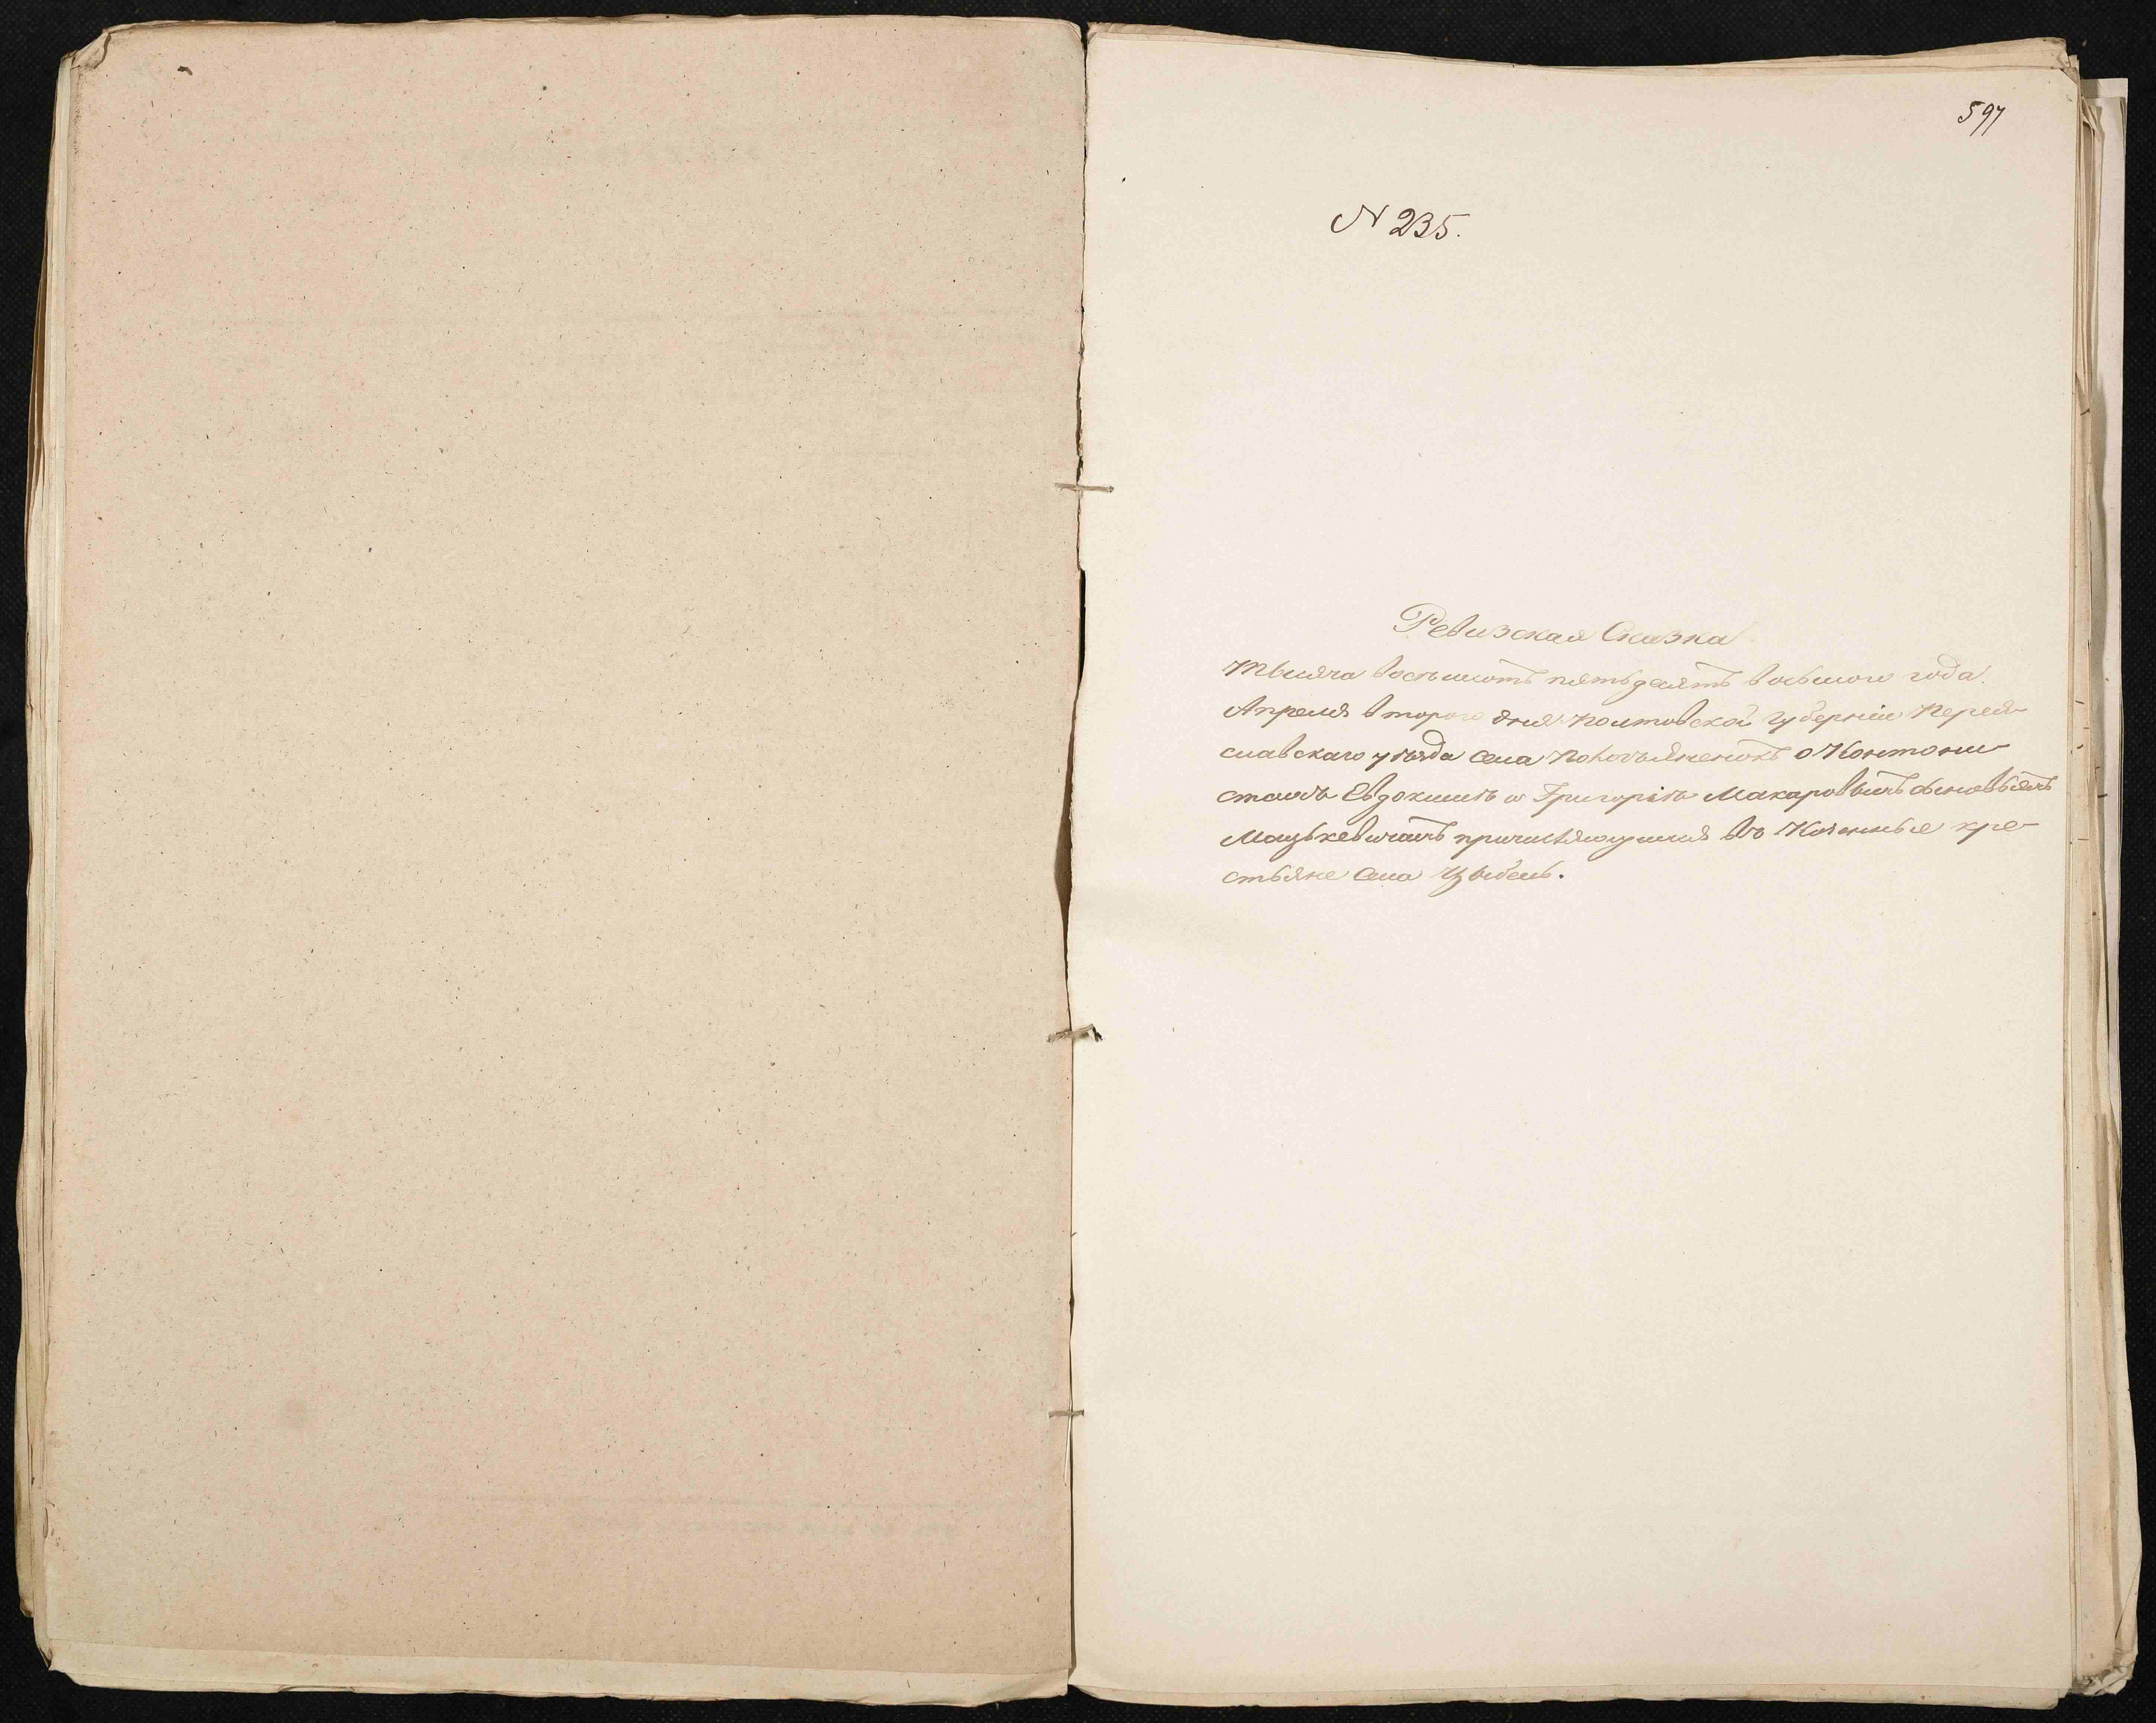 597
N 235.
Ревизская Сказка
Тысяча восемьсотъ пятьдесятъ восьмого года.
Апреля второго дня Полтавской Губерніи Перея-
славскаго уѣзда села о Контони-
стахъ Евдокимѣ и Григоріѣ Макаровыхъ сыновьяхъ
Мацькевичахъ причисляющихся въ Козенные кре-
стьяне села Цыбель.